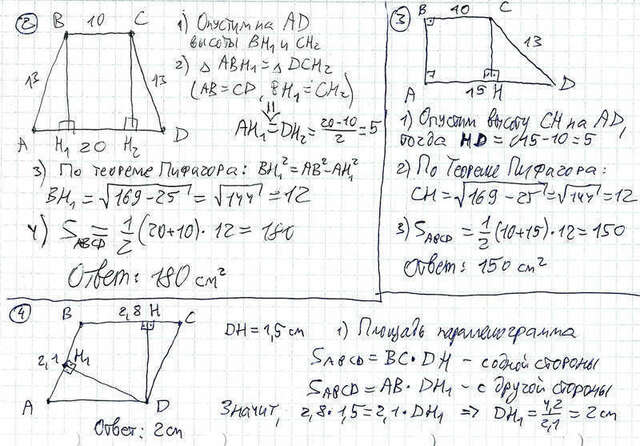 2
B 10 C
13 13
A H₁ 20 H₂ D
1) Опустим на AD
высоты BH₁ и CH₂
2) △ ABH₁ = △ DCH₂
(AB=CD, BH₁=CH₂)
⇓
AH₁=DH₂=20-10/2=5
3) По теореме Пифагора: BH₁²=AB²-AH₁²
BH₁=√169-25=√144=12
4) S ABCD=1/2(20+10)·12=180
Ответ: 180 см²
3
B 10 C
13
A 15 H D
1) Опустим высоту CH на AD,
тогда HD=15-10=5
2) По теореме Пифагора:
CH=√169-25=√144=12
3) S ABCD=1/2(10+15)·12=150
Ответ: 150 см²
4
B 2,8 H C
2,1 H₁
A D
Ответ: 2см
DH=1,5 см
1) Площадь параллелограмма
S ABCD=BC·DH - с одной стороны
S ABCD=AB·DH₁ - с другой стороны
Значит, 2,8·1,5=2,1·DH₁ ⇒ DH₁=4,2/2,1=2см